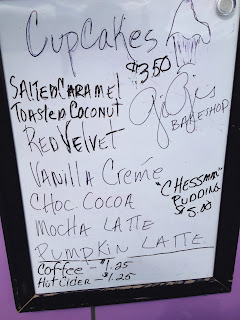 CupCakes
$3.50
SALTED CARAMEL
TOASTED COCONUT
RED VELVET
VANILLA CRÈME
CHOC. COCOA
MOCHA LATTE
PUMPKIN LATTE
Coffee - $1.25
HOT CIDER - $1.25
GiGi's
BAKESHOP
"CHESSMAN"
PUDDING
$5.00